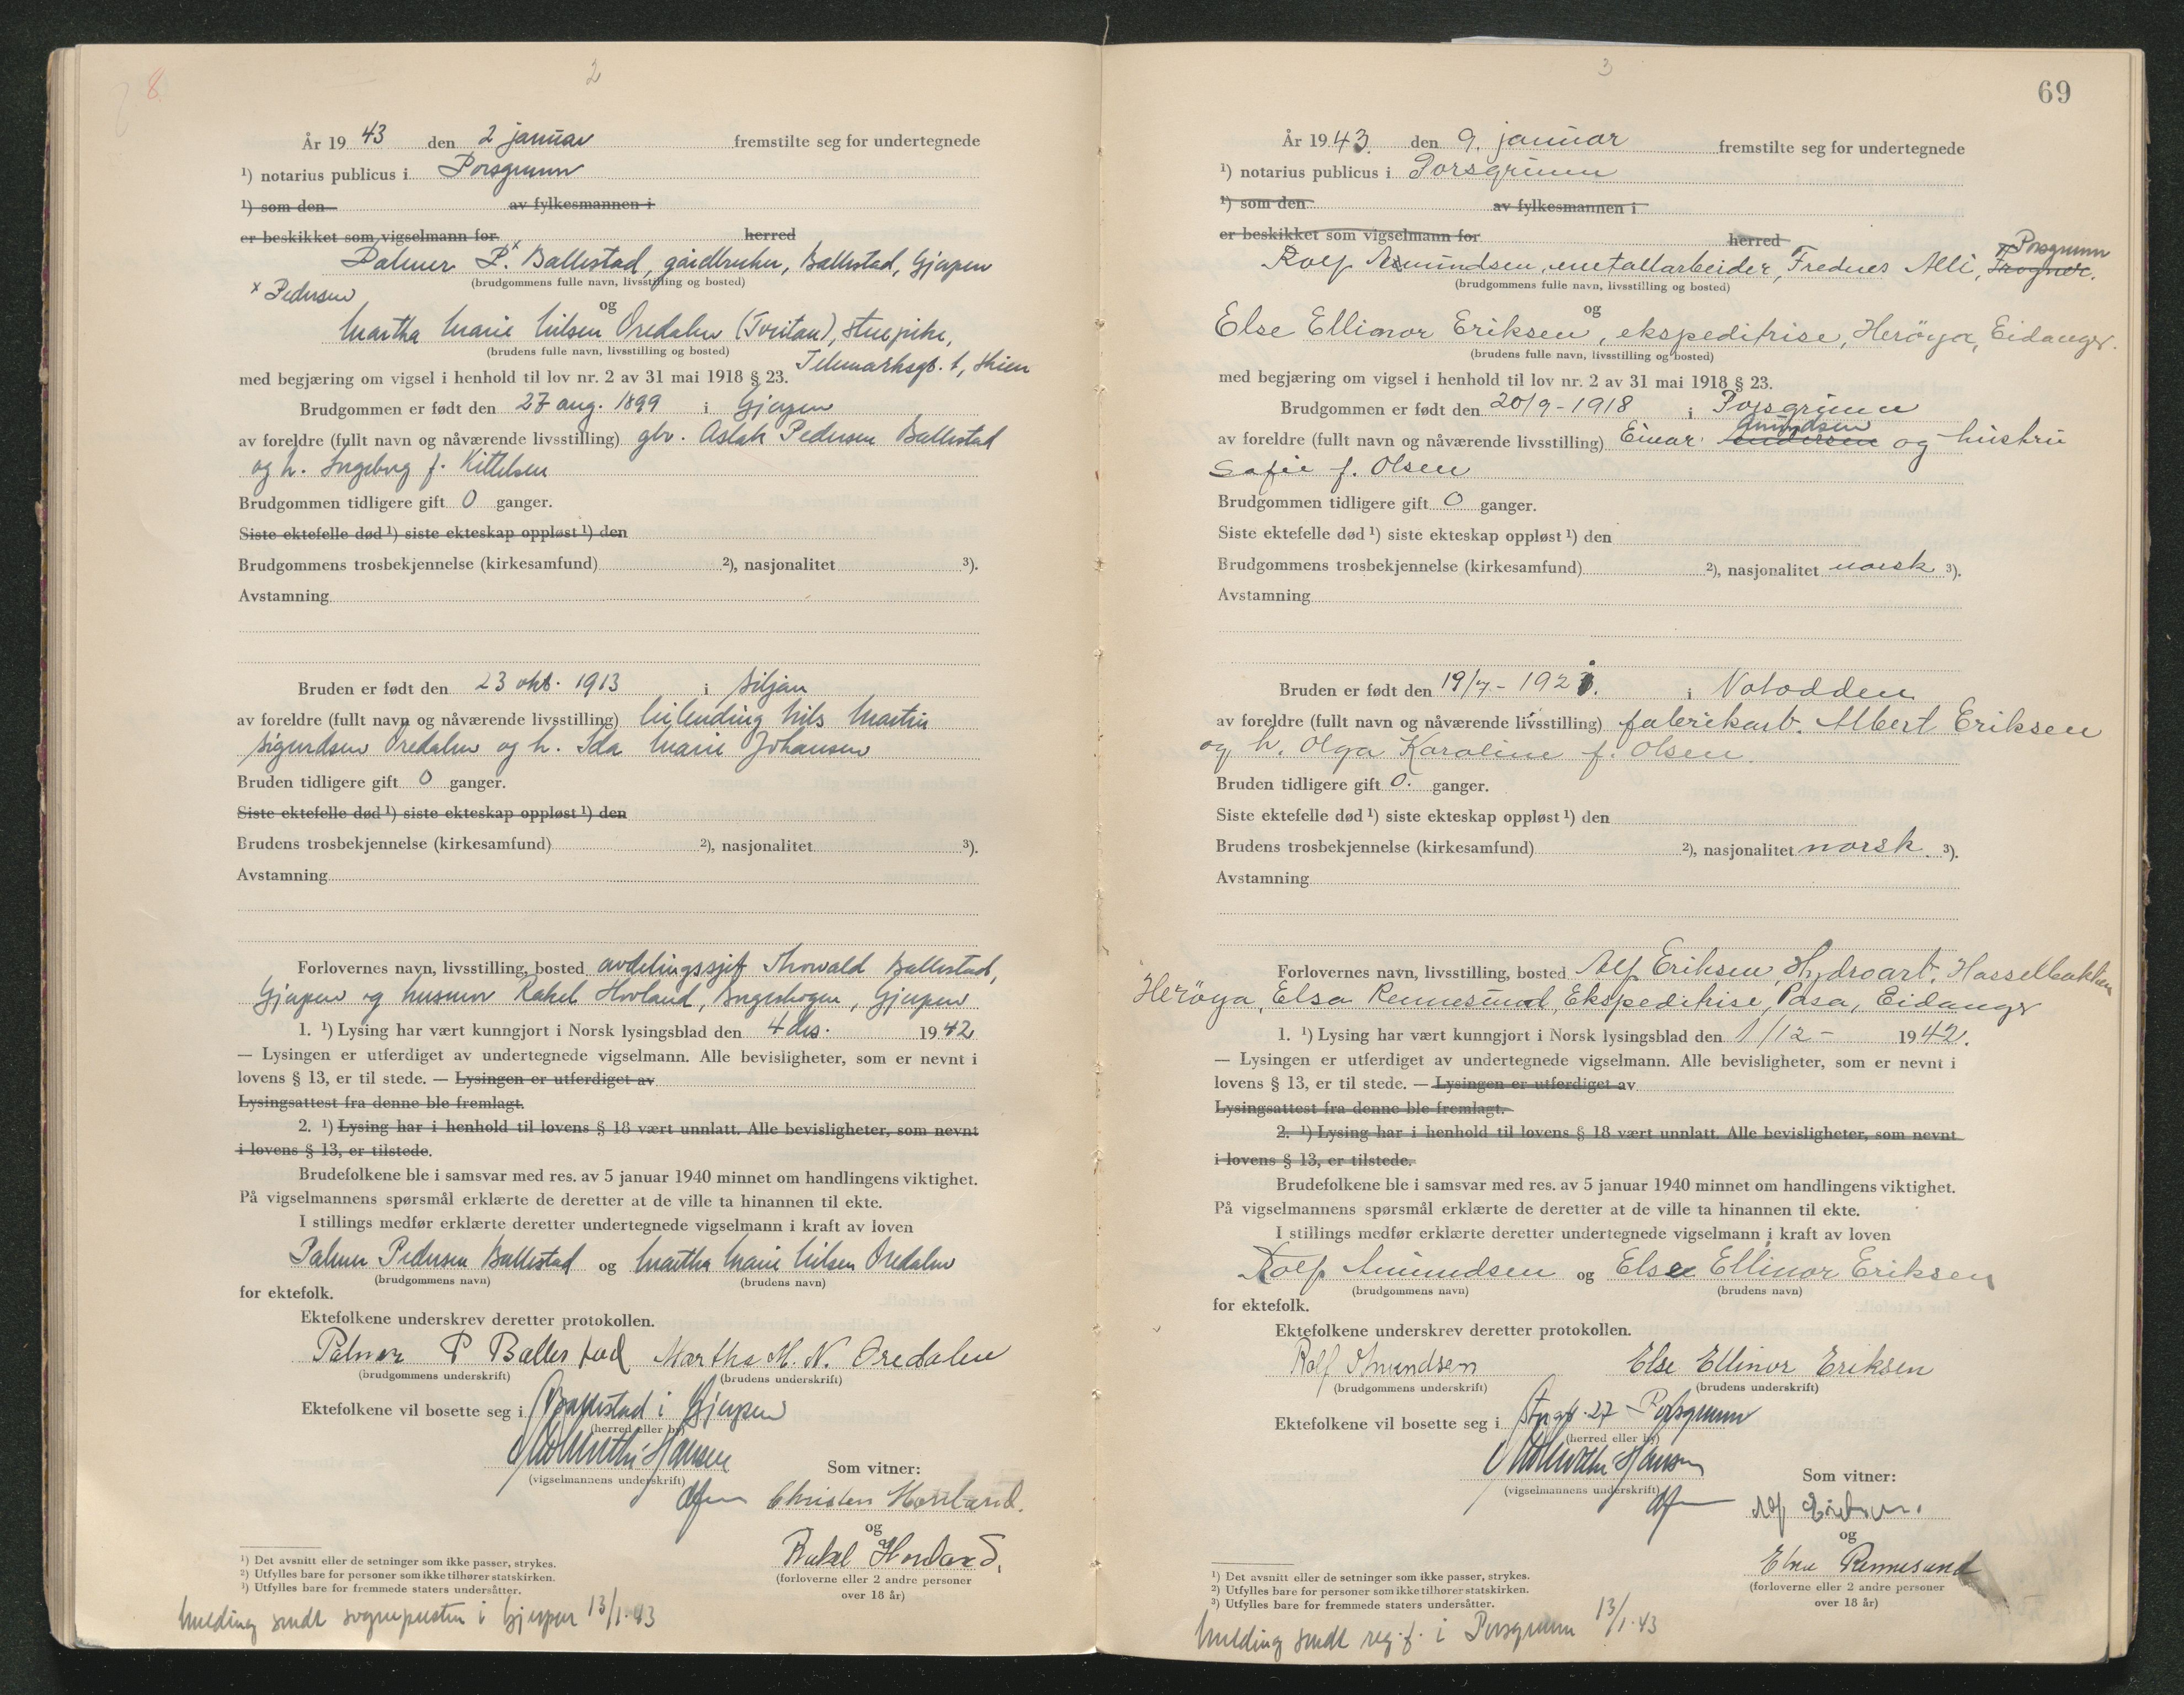 8
2
År 1943 den 2 januar fremstilte seg for undertegnede
¹) notarius publicus i Porsgrunn
¹) som den av fylkesmannen i
er beskikket som vigselmann for herred
Palmer P.ˣ Ballestad, gårdbruker, Ballestad, Gjerpen
(brudgommens fulle navn, livsstilling og bosted)
x Pedersen
og
Martha Marie Nilsen Oredalen (Tveitan), stuepike,
(brudens fulle navn, livsstilling og bosted)
Telemarksgt. 1, Skien
med begjæring om vigsel i henhold til lov nr. 2 av 31 mai 1918 § 23.
Brudgommen er født den 27 aug. 1899 i Gjerpen
av foreldre (fullt navn og nåværende livsstilling) gbr. Aslak Pedersen Ballestad
og h. Ingeborg f. Kittelsen
Brudgommen tidligere gift 0 ganger.
Siste ektefelle død ¹) siste ekteskap oppløst ¹) den
Brudgommens trosbekjennelse (kirkesamfund) ²), nasjonalitet ³).
Avstamning
Bruden er født den 23 okt. 1913 i Siljan
av foreldre (fullt navn og nåværende livsstilling) leilending Nils Martin
Sigurdsen Oredalen og h. Ida Marie Johansen
Bruden tidligere gift 0 ganger.
Siste ektefelle død ¹) siste ekteskap oppløst ¹) den
Brudens trosbekjennelse (kirkesamfund) ²), nasjonalitet ³).
Avstamning
Forlovernes navn, livsstilling, bosted avdelingssjef Thorvald Ballestad,
Gjerpen og husmor Rakel Hovland, Gjerpen
1. ¹) Lysing har vært kunngjort i Norsk lysingsblad den 4 des. 1942
— Lysingen er utferdiget av undertegnede vigselmann. Alle bevisligheter, som er nevnt i
lovens § 13, er til stede. — Lysingen er utferdiget av
Lysingsattest fra denne ble fremlagt.
2. ¹) Lysing har i henhold til lovens § 18 vært unnlatt. Alle bevisligheter, som nevnt
i lovens § 13, er tilstede.
Brudefolkene ble i samsvar med res. av 5 januar 1940 minnet om handlingens viktighet.
På vigselmannens spørsmål erklærte de deretter at de ville ta hinannen til ekte.
I stillings medfør erklærte deretter undertegnede vigselmann i kraft av loven
Palmer Pedersen Ballestad og Martha Marie Nilsen Oredalen
(brudgommens navn) (brudens navn)
for ektefolk.
Ektefolkene underskrev deretter protokollen.
Palmer P Ballestad Martha M. N. Oredalen
(brudgommens underskrift) (brudens underskrift)
Ektefolkene vil bosette seg i Ballestad i Gjerpen
(herred eller by)
Hansen
(vigselmannens underskrift)
Som vitner:
Christen Hovland.
og
Rakel Hovland.
(forloverne eller 2 andre personer
over 18 år)
¹) Det avsnitt eller de setninger som ikke passer, strykes.
²) Utfylles bare for personer som ikke tilhører statskirken.
³) Utfylles bare for fremmede staters undersåtter.
Melding sendt sognepresten i Gjerpen 13/1.43
3
69
År 1943. den 9. januar fremstilte seg for undertegnede
¹) notarius publicus i Porsgrunn
¹) som den av fylkesmannen i
er beskikket som vigselmann for herred
Porsgrunn
Rolf Amundsen, metallarbeider, Frednes Allé,
(brudgommens fulle navn, livsstilling og bosted)
og
Else Ellinor Eriksen, ekspeditrise, Herøya, Eidanger.
(brudens fulle navn, livsstilling og bosted)
med begjæring om vigsel i henhold til lov nr. 2 av 31 mai 1918 § 23.
Brudgommen er født den 20/9-1918 i Porsgrunn
Amundsen
av foreldre (fullt navn og nåværende livsstilling) Einar Andersen og hustru
Sofie f. Olsen
Brudgommen tidligere gift 0 ganger.
Siste ektefelle død ¹) siste ekteskap oppløst ¹) den
Brudgommens trosbekjennelse (kirkesamfund) ²), nasjonalitet norsk ³).
Avstamning
Bruden er født den 19/7-192 i Notodden
av foreldre (fullt navn og nåværende livsstilling) fabrikarb. Albert Eriksen
og h. Olga Karoline f. Olsen
Bruden tidligere gift 0. ganger.
Siste ektefelle død ¹) siste ekteskap oppløst ¹) den
Brudens trosbekjennelse (kirkesamfund) ²), nasjonalitet norsk. ³).
Avstamning
Forlovernes navn, livsstilling, bosted Alf Eriksen, Hydroarb. Hasselbakken
Herøya, Elsa Rennesund, Ekspeditrise, Pasa, Eidanger
1. ¹) Lysing har vært kunngjort i Norsk lysingsblad den 1/12- 1942.
— Lysingen er utferdiget av undertegnede vigselmann. Alle bevisligheter, som er nevnt i
lovens § 13, er til stede. — Lysingen er utferdiget av
Lysingsattest fra denne ble fremlagt.
2. ¹) Lysing har i henhold til lovens § 18 vært unnlatt. Alle bevisligheter, som nevnt
i lovens § 13, er tilstede.
Brudefolkene ble i samsvar med res. av 5 januar 1940 minnet om handlingens viktighet.
På vigselmannens spørsmål erklærte de deretter at de ville ta hinannen til ekte.
I stillings medfør erklærte deretter undertegnede vigselmann i kraft av loven
Rolf Amundsen og Else Ellinor Eriksen
(brudgommens navn) (brudens navn)
for ektefolk.
Ektefolkene underskrev deretter protokollen.
Rolf Amundsen Else Ellinor Eriksen
(brudgommens underskrift) (brudens underskrift)
Ektefolkene vil bosette seg i Storgt. 27 - Porsgrunn
(herred eller by)
Hansen
(vigselmannens underskrift)
Som vitner:
Alf Eriksen.
og
Elsa Rennesund
(forloverne eller 2 andre personer
over 18 år)
¹) Det avsnitt eller de setninger som ikke passer, strykes.
²) Utfylles bare for personer som ikke tilhører statskirken.
³) Utfylles bare for fremmede staters undersåtter.
Melding sendt reg.f. i Porsgrunn 13/1.43